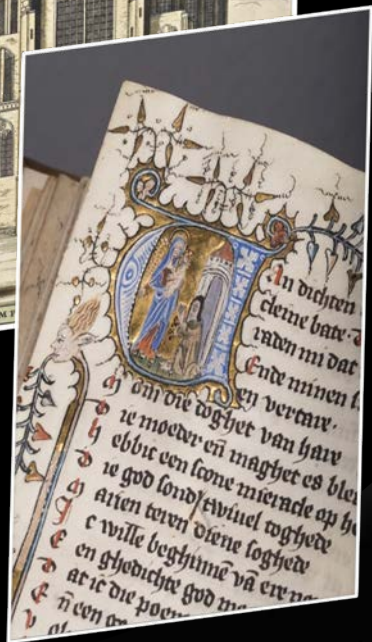 Van dichten
cleine bate. D
raden mi dat
Ende minen s
en vertare.
M om die doghet van hare
D ie moeder en̄ maghet es ble
H ebbic een scone mieracle op he
D ie god sond' twiuel toghede
M arien teren diene soghede
I c wille beghinnē vā ere no
E en ghedichte god mo
D at ic die poen